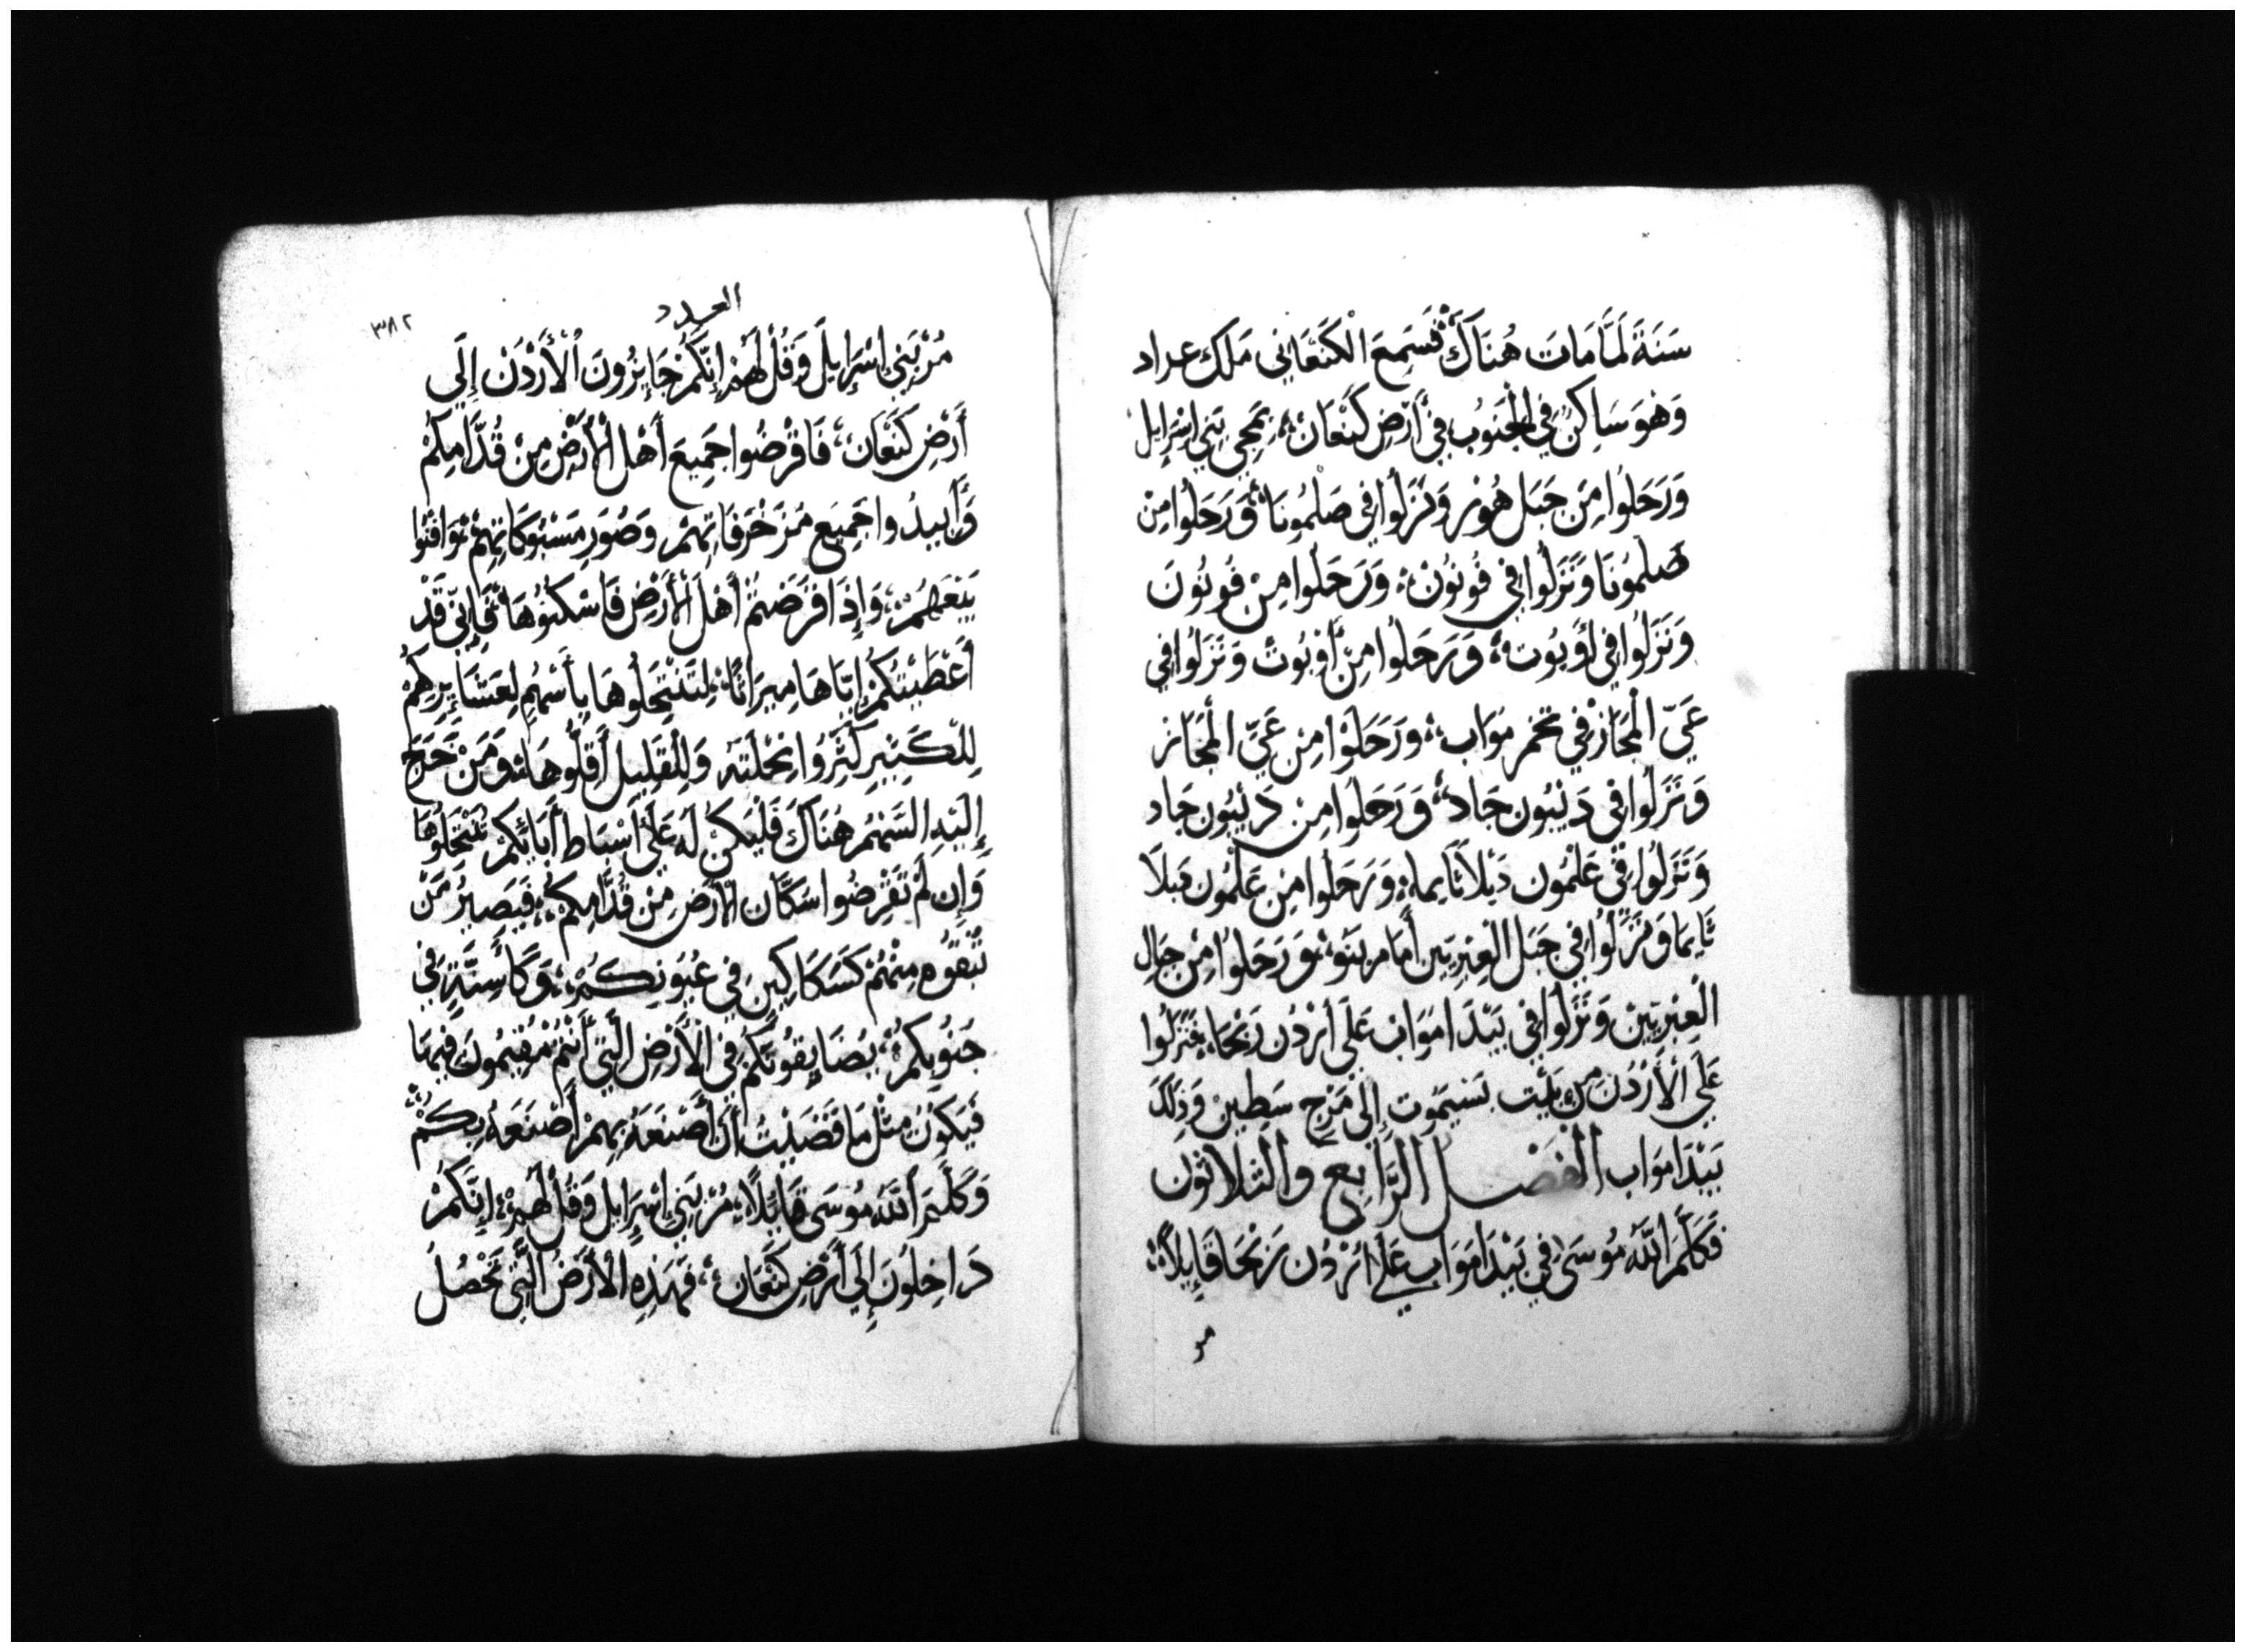 سَنَةً لَمَّا مَاتَ هُنَاكَ فَسَمِعَ الْكَنَعَانِي مَلَك عراد
وَهُوَ سَاكِنٌ فِي الْجَنُوبِ فِي أَرْضِ كَنَعَان بِمَجِي بَنِي اِسْرَايِل
وَرَحَلُوا مِنَ جَبَل هُور وَنَزَلُوا فِي صَلْمُونَا وَرَحَلُوا مِنْ
صَلْمُونَا وَنَزَلُوا فِي فُونُون وَرَحَلُوا مِنْ فُونُون
وَنَزَلُوا فِي أَوبُوت وَرَحَلُوا مِنْ أَوْبُوتْ وَنَزَلُوا فِي
عَيِّ الْمَجَاز فِي تخم مَوَاب وَرَحَلُوا مِن عَيِّ الْمَجَاز
وَنَزَلُوا فِي دَيْبُون جَاد وَرَحَلُوا مِن دَيْبُون جَاد
وَنَزَلُوا فِي عَلْمُون دَبْلَاتَايما وَرَحَلُوا مِن عَلْمُون دَبلَا
تَايمَا وَنَزَلُوا فِي جَبَل الْعِبْرِيِّين أَمَام نَبَو وَرَحَلُوا مِنْ جِبَال
الْعِبْرِيِّين وَنَزَلُوا فِي بَيْدَا مَوَاب عَلَى اُرْدُن رِيْحَا فَنَزَلُوا
عَلَى الْأُرْدُن مِن بَيْت يَسِيمُوت إِلَى مَرْج سَطِين وَذَلِكَ
بَيْدَا مَوَاب الفَصْل الرَّابِع وَالثلاثون
فَكَلَّمَ اللَّهُ مُوسَى فِي بَيْدَا مَوَاب عَلَى اُرْدُن رِيْحَا قَايِلاً
مر
العدد
٣٨٢
مُرْ بَنِي اِسْرَايِلَ وَقُلْ لَهُمْ إِنَّكُمْ جَايِزُونَ الْأُرْدُنَ إِلَى
أَرْضِ كَنَعَان فَاقْرِضُوا جَمِيعَ أَهْل الْأَرْضِ مِنْ قُدَّامِكُمْ
وَأَبِيدُوا جَمِيعَ مُزَخْرَفَاتِهِمْ وَصُوَرِ مَسْبُوكَاتِهِمْ وَافْنُوا
بِيَعَهُمْ وَإِذَا قَرَضْتُمْ أَهْلَ الْأَرْضِ فَاسْكُنُوهَا فَإِنِّي قَدْ
أَعْطَيْتُكُمْ إِيَّاهَا مِيرَاثًا لِتَنْتَحِلُوهَا بِأَسْهُمٍ لِعَشَايِرِكُمْ
لِلْكَثِيرِ كَثِّرُوا نِحْلَتَهُ وَلِلْقَلِيلِ أَقِلُّوهَا وَمَنْ خَرَجَ
إِلَيْهِ السَّهْمُ هُنَاكَ فَلْيَكُنْ لَهُ عَلَى أَسْبَاطِ أَبَائِكُمْ تَنْتَحِلُوهَا
وَإِن لَمْ تَقْرِضُوا سُكَّان الْأَرْضِ مِنْ قُدَّامِكُمْ فَيَصِيرُ مَنْ
تُبْقُوه مِنْهُمْ كَسَكَاكِين فِي عُيُونِكُمْ وَكَأَسِنَّةٍ فِي
جُنُوبِكُمْ يُضَايِقُونَكُمْ فِي الْأَرْضِ الَّتِي أَنْتُمْ مُقِيمُونَ فِيهَا
فَيَكُونُ مِثْل مَا قَضَيْتُ أَنْ أَصْنَعَهُ بِهِمْ أَصْنَعَهُ بِكُمْ
وَكَلَّمَ اللَّهُ مُوسَى قَايِلاً مُرْ بَنِي اِسْرَايِل وَقُلْ لَهُمْ إِنَّكُمْ
دَاخِلُونَ إِلَى أَرْضِ كَنَعَان فَهَذِهِ الْأَرْضُ الَّتِي تَحْصُلُ